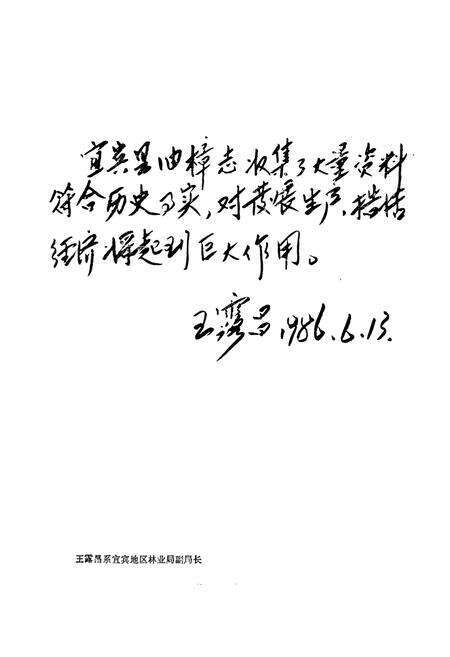 宜宾县油樟志收集了大量资料
符合历史事实,对发展生产、搞活
经济将起到巨大作用。
王露昌 1986.6.13.
王露昌系宜宾地区林业局副局长